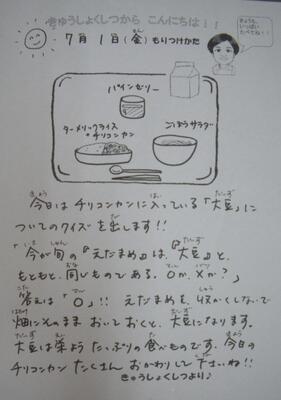 きゅうしょくしつから こんにちは！！
きょうも、
いっぱい
たべてね！
7月 1日(金) もりつけかた
パインゼリー
ターメリックライス
チリコンカン
ごぼうサラダ
今日はチリコンカンに入っている「大豆」に
ついてのクイズを出します!!
「今が旬の『えだまめ』は、『大豆』と、
もともと、同じものである。○か、×か？」
答えは「○」!! えだまめを、収かくしないで
畑にそのまま おいておくと、大豆になります。
大豆は栄よう たっぷりの食べものです。今日の
チリコンカン たくさん おかわりして 下さいね!!
きゅうしょくしつより♪